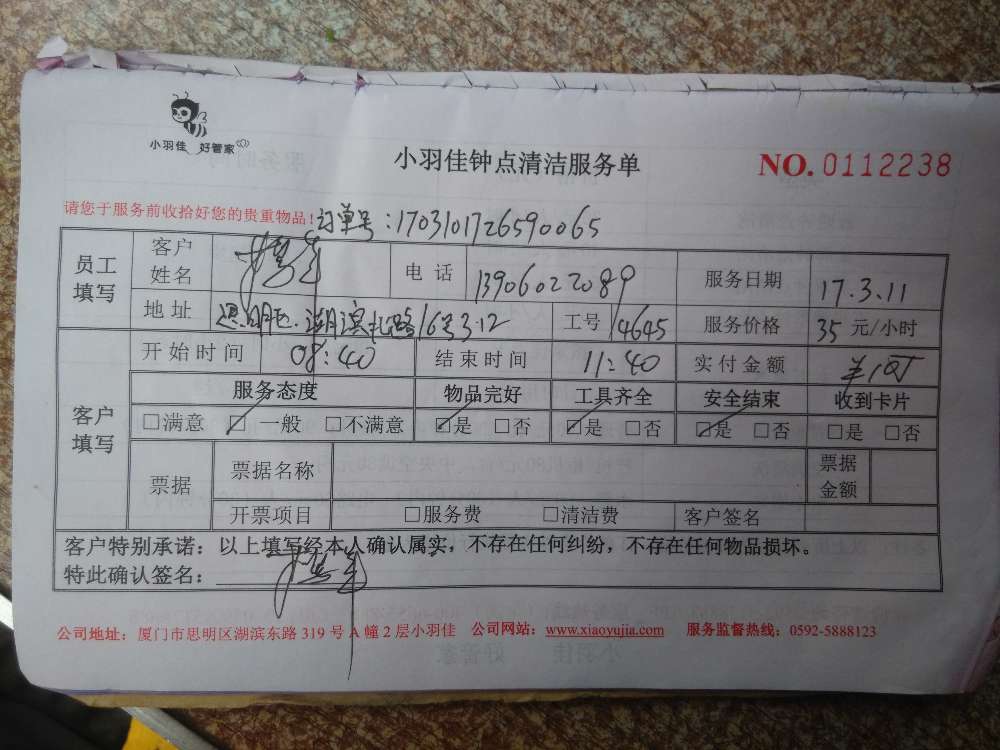 小羽佳 好管家
小羽佳钟点清洁服务单
NO. 0112238
请您于服务前收拾好您的贵重物品!
订单号:1703101726590065
员工填写 客户姓名 电话 13906022089 服务日期 17.3.11
地址 思明区湖滨北路16号312 工号 4645 服务价格 35 元/小时
客户填写 开始时间 08:40 结束时间 11:40 实付金额 ¥105
服务态度 物品完好 工具齐全 安全结束 收到卡片
□满意 ☑一般 □不满意 ☑是 □否 ☑是 □否 ☑是 □否 □是 □否
票据 票据名称 票据金额
开票项目 □服务费 □清洁费 客户签名
客户特别承诺:以上填写经本人确认属实,不存在任何纠纷,不存在任何物品损坏。
特此确认签名:
公司地址:厦门市思明区湖滨东路 319 号 A 幢 2 层小羽佳 公司网站:www.xiaoyujia.com 服务监督热线:0592-5888123